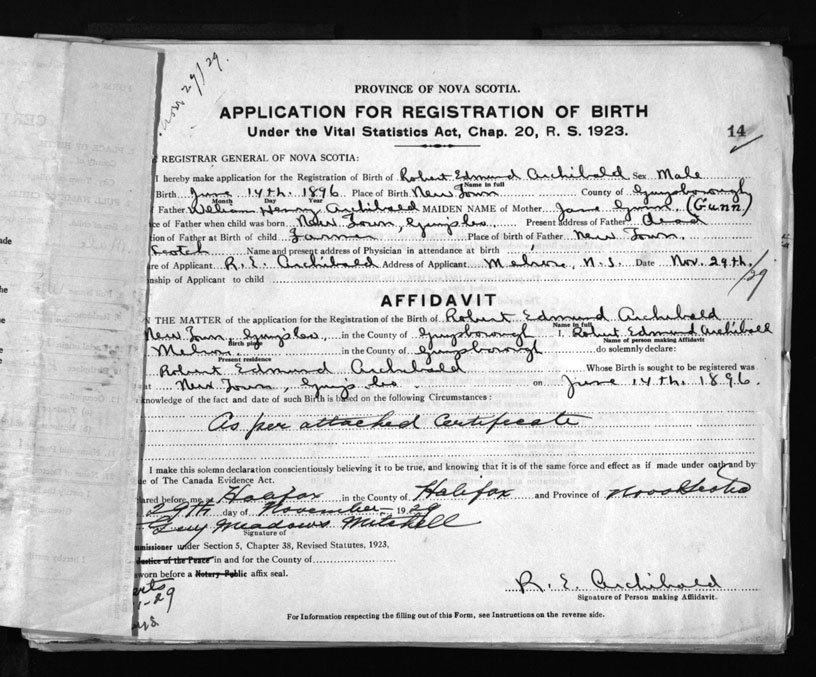 Nov 29/29.
PROVINCE OF NOVA SCOTIA.
APPLICATION FOR REGISTRATION OF BIRTH
Under the Vital Statistics Act, Chap. 20, R. S. 1923.
14
REGISTRAR GENERAL OF NOVA SCOTIA:
I hereby make application for the Registration of Birth of Robert Edmund Archibald Sex Male
Name in full
Birth June 14th. 1896 Place of Birth New Town County of Guysborough
Month Day Year
Father William Henry Archibald MAIDEN NAME of Mother Jane (Gunn)
ce of Father when child was born New Town, Guys. Co., Present address of Father dead
tion of Father at Birth of child Farmer Place of birth of Father New Town.
Scotch Name and present address of Physician in attendance at birth
re of Applicant R. E. Archibald Address of Applicant Melrose, N. S. Date Nov. 29th/29
nship of Applicant to child
AFFIDAVIT
N THE MATTER of the application for the Registration of the Birth of Robert Edmund Archibald
Name in full
New Town, Guys. Co., in the County of Guysborough I, Robert Edmund Archibald
Birth place Name of person making Affidavit
Melrose in the County of Guysborough do solemnly declare:
Present residence
Robert Edmund Archibald Whose Birth is sought to be registered was
at New Town, Guys. Co. on June 14th. 1896.
knowledge of the fact and date of such Birth is based on the following Circumstances:
As per attached Certificate
I make this solemn declaration conscientiously believing it to be true, and knowing that it is of the same force and effect as if made under oath and by
e of The Canada Evidence Act.
ared before me at Halifax in the County of Halifax and Province of Nova Scotia
29th day of November 1929
Meadows Mitchell
Signature of
mmissioner under Section 5, Chapter 38, Revised Statutes, 1923.
Justice of the Peace in and for the County of
worn before a Notary Public affix seal.
R. E. Archibald
Signature of Person making Affidavit.
For Information respecting the filling out of this Form, see Instructions on the reverse side.